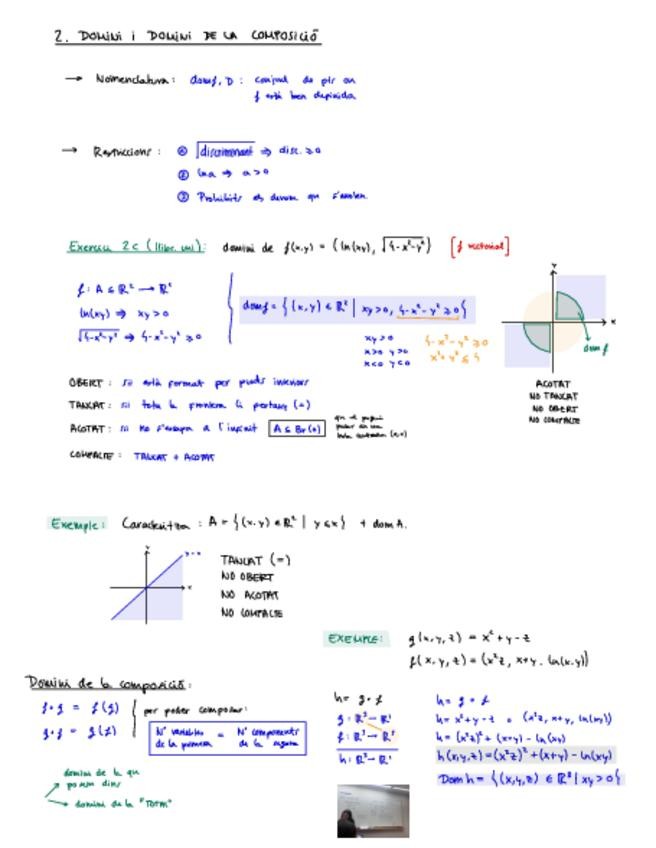 2. DOMINI i DOMINI DE LA COMPOSICIÓ
→ Nomenclatura: domf, D: conjunt de pts on
f està ben definida
→ Restriccions: ① √discriminant ⇒ disc. ≥ 0
② ln a ⇒ a > 0
③ Prohibits els denom que s'anulen
Exercici 2c (llibr. uni): domini de f(x,y) = (ln(xy), √4-x²-y²) [f vectorial]
f: A ⊆ ℝ² → ℝ²
ln(xy) ⇒ xy > 0
√4-x²-y² ⇒ 4-x²-y² ≥ 0
domf = {(x,y) ∈ ℝ² | xy>0, 4-x²-y² ≥ 0}
xy > 0
x>0 y>0
x<0 y<0
4-x²-y² ≥ 0
x²+y² ≤ 4
Y
x
domf
ACOTAT
NO TANCAT
NO OBERT
NO COMPACTE
OBERT: si està format per punts interiors
TANCAT: si tota la frontera li pertany (=)
ACOTAT: si no s'escapa a l'infinit A ⊆ Br(0)
COMPACTE: TANCAT + ACOTAT
Exemple: Caracteritza: A = {(x,y) ∈ ℝ² | y ≤ x} + dom A.
Y
y=x
x
TANCAT (=)
NO OBERT
NO ACOTAT
NO COMPACTE
EXEMPLE: g(x,y,z) = x²+y-z
f(x,y,z) = (x²z, x+y, ln(x·y))
Domini de la composició:
f∘g = f(g)
g∘f = g(f)
per poder composar:
Nº variables = Nº components
de la primera de la segona
domini de la que
posem dins
domini de la "TOTAL"
h = g∘f
g: ℝ³ → ℝ¹
f: ℝ³ → ℝ³
h: ℝ³ → ℝ¹
h = g∘f
h = x²+y-z ∘ (x²z, x+y, ln(xy))
h = (x²z)² + (x+y) - ln(xy)
h(x,y,z) = (x²z)² + (x+y) - ln(xy)
Dom h = {(x,y,z) ∈ ℝ³ | xy>0}